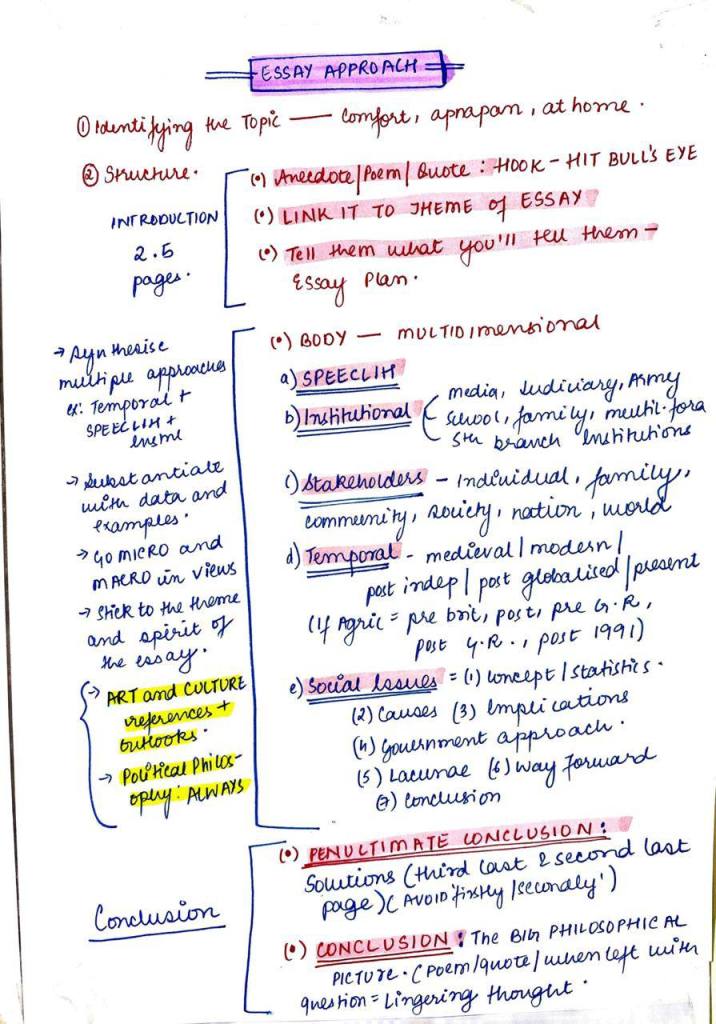 ESSAY APPROACH
① Identifying the Topic — Comfort, apnapan, at home.
② Structure.
INTRODUCTION
2.5
pages.
(•) Anecdote/Poem/Quote : HOOK - HIT BULL'S EYE
(•) LINK IT TO THEME of ESSAY
(•) Tell them what you'll tell them -
Essay Plan.
(•) BODY — MULTIDIMENSIONAL
a) SPEECLIH
b) Institutional
media, Judiciary, Army
school, family, multil. fora
5th branch Institutions
c) Stakeholders - Individual, family,
community, society, nation, world
d) Temporal - medieval / modern /
post indep / post globalised / present
(If Agric = pre brit, post, pre G.R,
post G.R., post 1991)
e) Social Issues = (1) concept / statistics.
(2) Causes (3) Implications
(4) Government approach.
(5) Lacunae (6) Way Forward
(7) Conclusion
→ Synthesise
multiple approaches
ex: Temporal +
SPEECLIH +
→ Substantiate
with data and
examples.
→ Go MICRO and
MACRO in views
→ Stick to the theme
and spirit of
the essay.
→ ART and CULTURE
references +
outlooks.
→ Political Philos-
ophy: ALWAYS
Conclusion
(•) PENULTIMATE CONCLUSION :
Solutions (third last & second last
page) (AVOID 'firstly / secondly')
(•) CONCLUSION : The BIG PHILOSOPHICAL
PICTURE. (Poem/quote/when left with
question = Lingering thought.